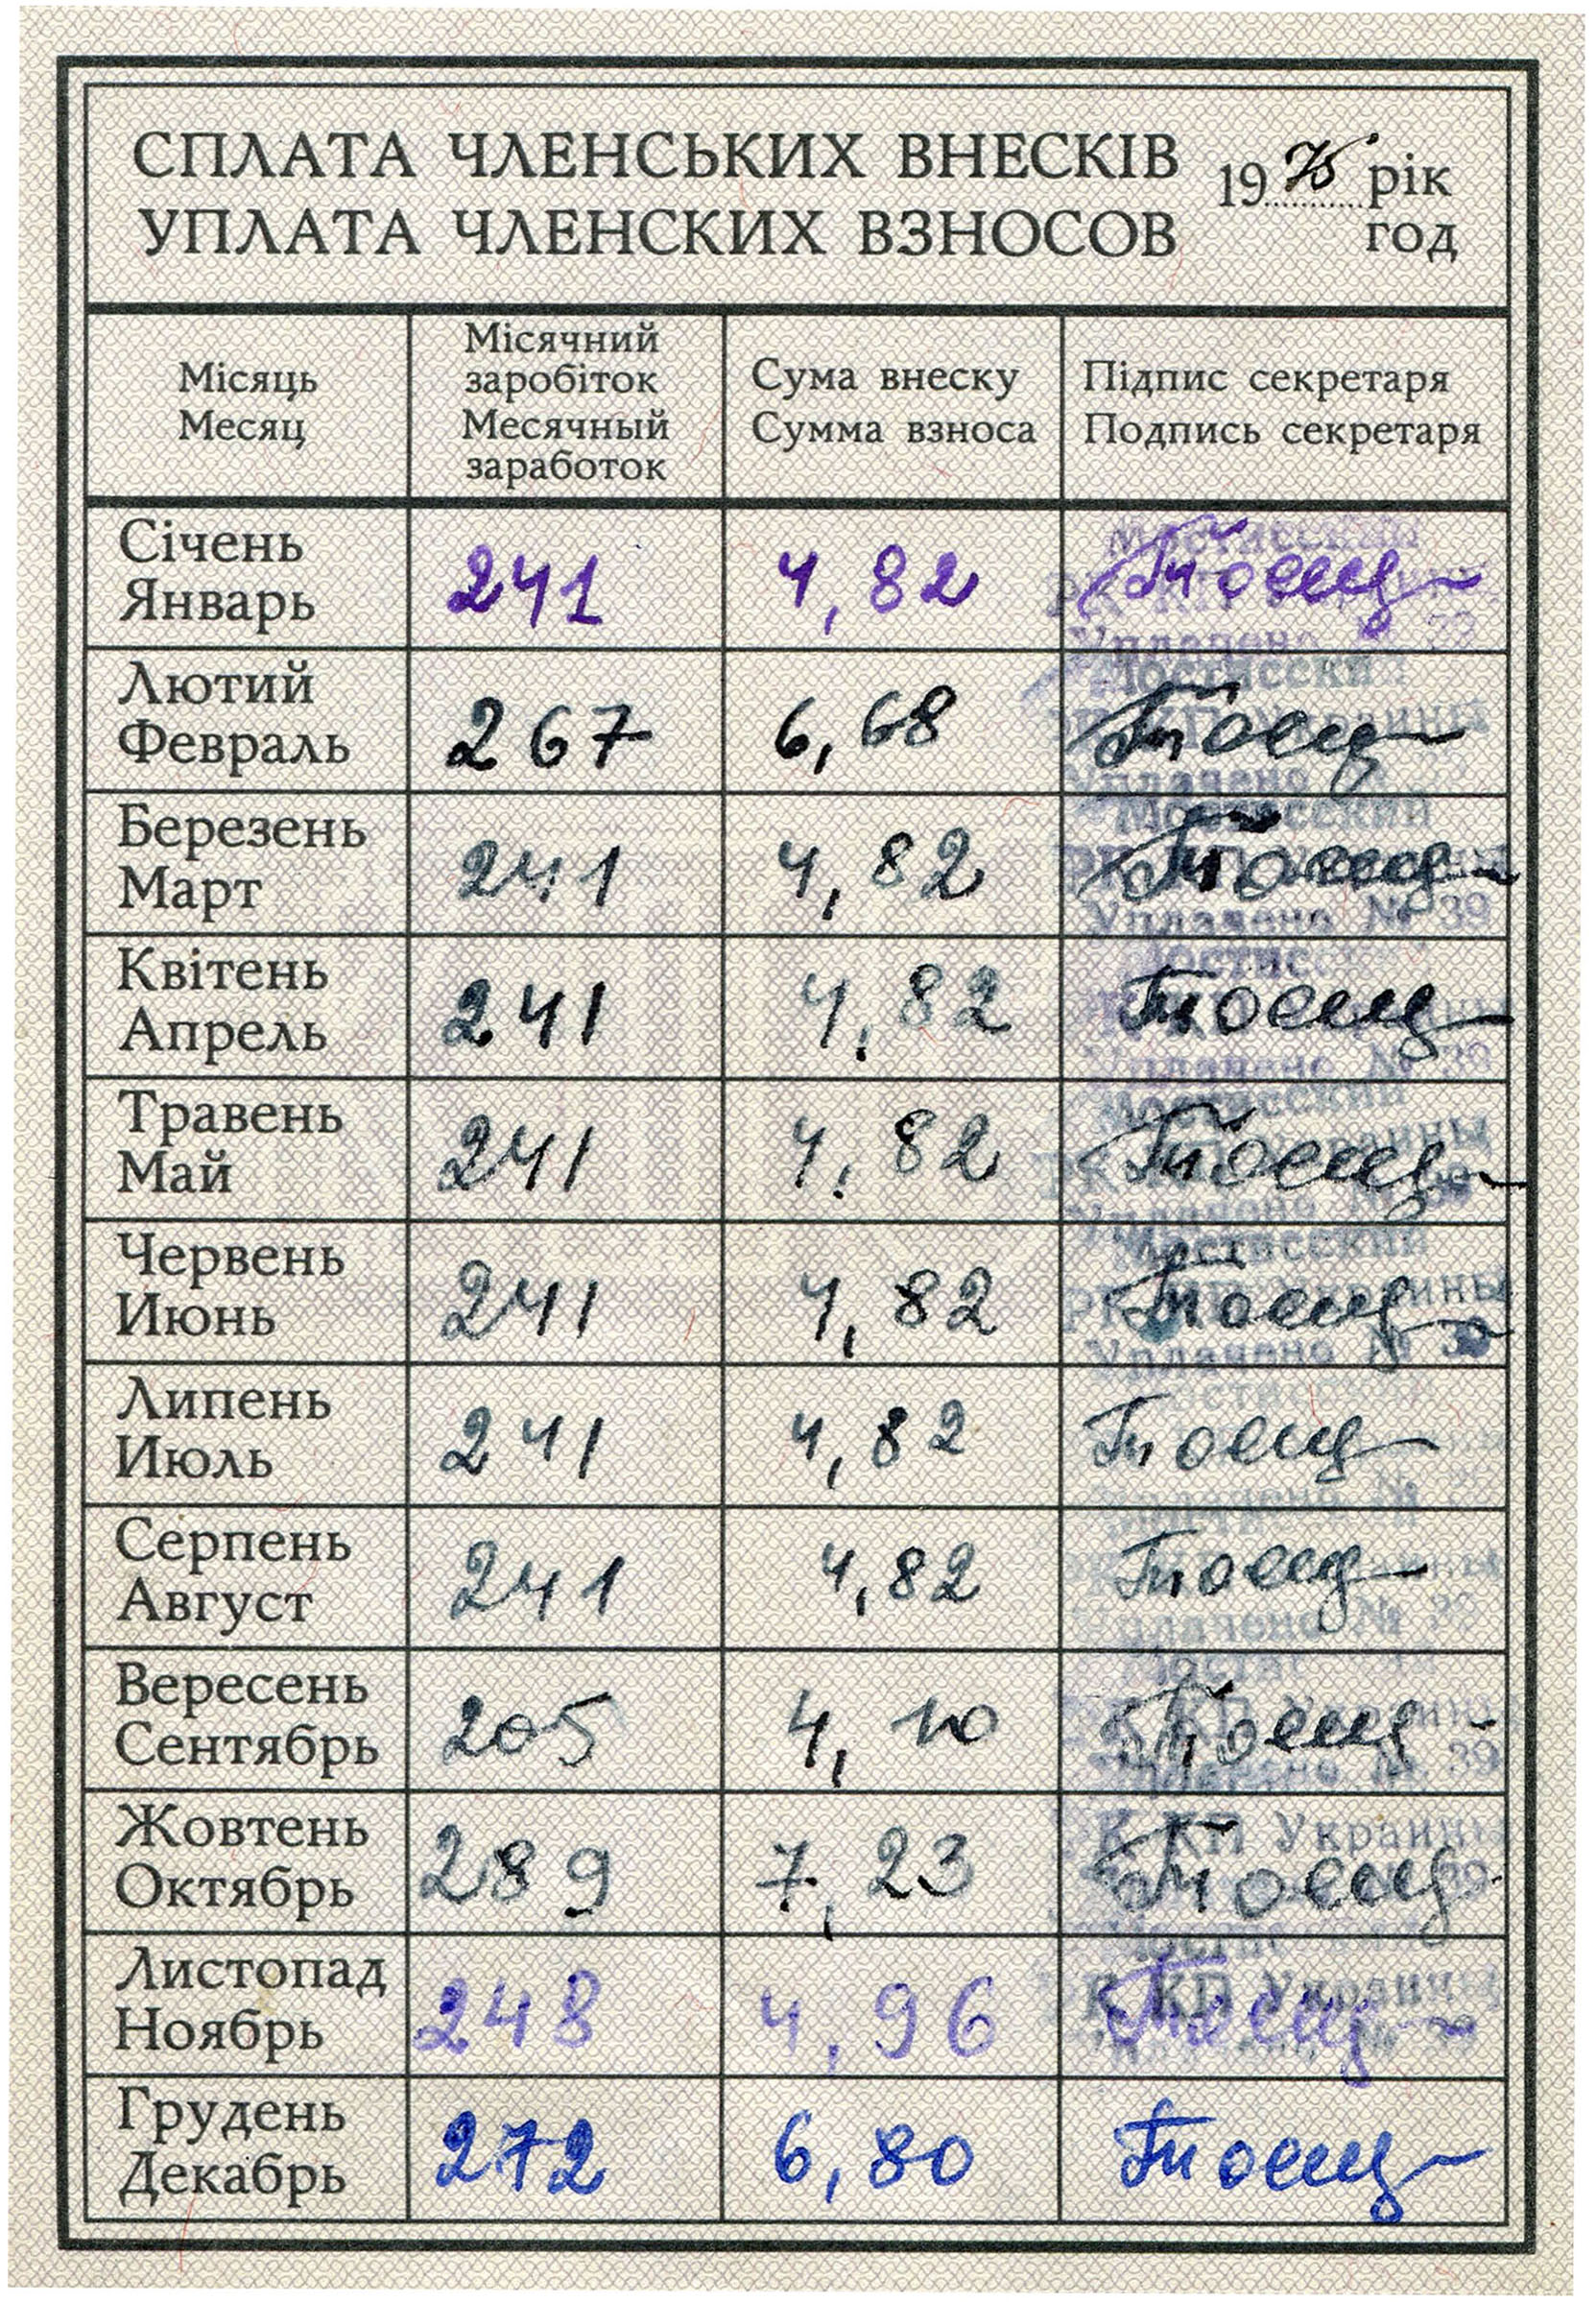 СПЛАТА ЧЛЕНСЬКИХ ВНЕСКІВ 1975 рік
УПЛАТА ЧЛЕНСКИХ ВЗНОСОВ год
Місяць
Месяц
Місячний
заробіток
Месячный
заработок
Сума внеску
Сумма взноса
Підпис секретаря
Подпись секретаря
Січень
Январь
241
4,82
Мостисский
РК КП
Уплачено № 39
Лютий
Февраль
267
6,68
Мостисский
РК КП Украины
Уплачено
Березень
Март
241
4,82
Мостисский
РК КП Украины
Уплачено № 39
Квітень
Апрель
241
4,82
Уплачено № 39
Травень
Май
241
4,82
Мостисский
РК КП Украины
Уплачено № 39
Червень
Июнь
241
4,82
Мостисский
РК КП Украины
Уплачено № 39
Липень
Июль
241
4,82
Мостисский
Уплачено №
Серпень
Август
241
4,82
Уплачено № 39
Вересень
Сентябрь
205
4,10
РК КП Украины
Уплачено № 39
Жовтень
Октябрь
289
7,23
РК КП Украины
39
Листопад
Ноябрь
248
4,96
РК КП Украины
Уплачено № 39
Грудень
Декабрь
272
6,80